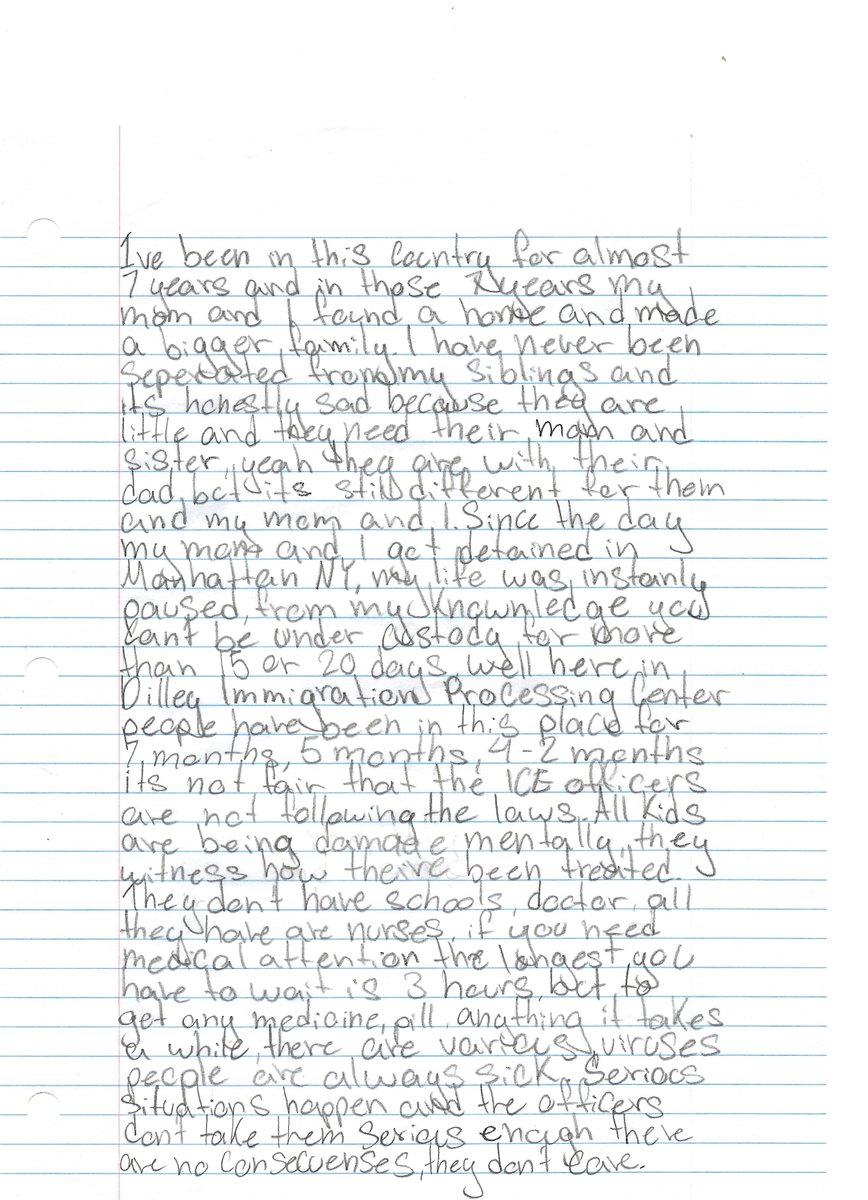 Ive been in this Country for almost
7 years and in those 7 years my
mom and I found a home and made
a bigger family. I have never been
seperated from my siblings and
its honestly sad because they are
little and they need their mom and
sister, yeah they are with their
dad, but its still different for them
and my mom and I. Since the day
my mom and I got detained in
Manhattan NY, my life was instanly
paused, from my Knownledge you
cant be under custody for more
than 15 or 20 days, well here in
Dilley Immigration Processing Center
people have been in this place for
7 months, 5 months, 4-2 months
its not fair that the ICE officers
are not following the laws. All Kids
are being damade mentally, they
witness how their've been treated.
They don't have schools, doctor, all
they have are nurses, if you need
medical attention the longest you
have to wait is 3 hours, but to
get any medicine, pill, anything it takes
a while, there are various viruses
people are always sick. Serious
situations happen and the officers
dont take them serius enough there
are no consecuenses, they don't care.